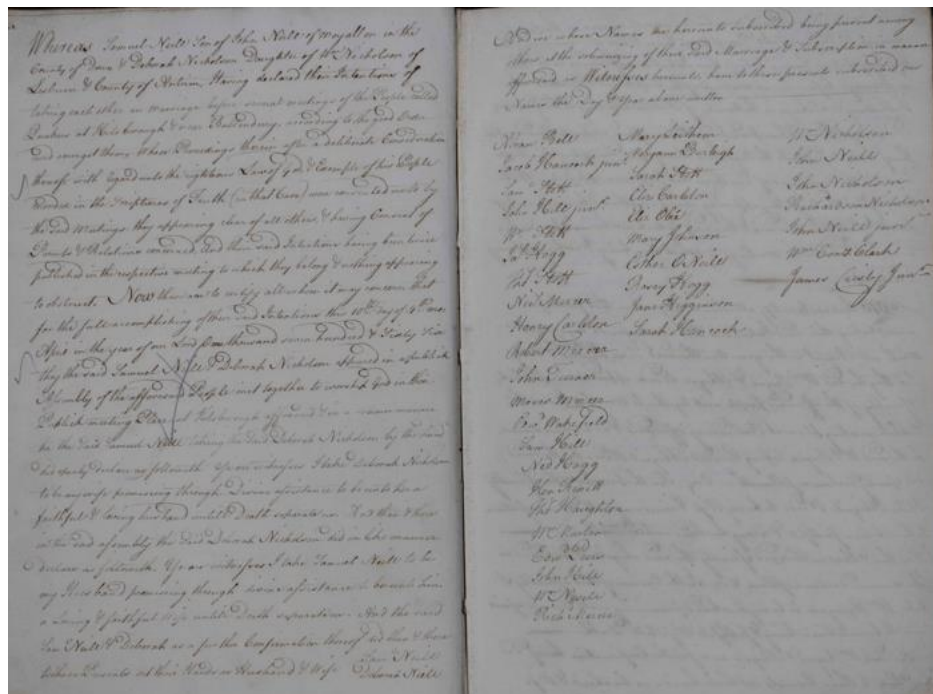 Whereas Samuel Neill Son of John Neill of Moyallon in the
County of Down & Deborah Nicholson Daughter of Wm Nicholson of
Lisburn & County of Antrim, Having declared their Intentions of
taking each other in Marriage before several meetings of the People called
Quakers at Hilsborough & near according to the good Order
used amongst them whose Proceedings therein after a deliberate Consideration
thereof with regard unto the righteous Law of God & Example of his People
in the Scriptures of Truth (in that Case) were by
the said Meetings they appearing clear of all others, & having Consent of
Parents & Relations concerned, And their said Intentions being been twice
published in the respective meeting to which they belong & nothing appearing
to obstruct. Now these are to certify all whom it may concern that
for the full accomplishing of their said Intentions this 10th day of 4th mo
April in the year of our Lord One thousand seven hundred & Sixty
they the said Samuel Neill & Deborah Nicholson appeared in a publick
Assembly of the aforesaid People met together to worship God in their
Publick meeting Place at Hilsborough aforesaid & in a manner
he the said Samuel Neill taking the said Deborah Nicholson by the hand
did openly declare as followeth Ye are witnesses I take Deborah Nicholson
to be my wife promising through Divine assistance to be unto her a
faithful & loving husband until Death separate us. And then & there
in the said assembly the said Deborah Nicholson did in like manner
declare as followeth Ye are witnesses I take Samuel Neill to be
my Husband promising through divine assistance to be unto him
a loving & faithful Wife until Death separate us. And the said
Sam Neill & Deborah as a further Confirmation thereof did then & there
to these Presents set their Hands as Husband & Wife Sam Neill
Deborah Neill
And we whose Names are hereunto subscribed being present among
others at the of their said Marriage & Subscription in manner
aforesaid as Witnesses hereunto have to these presents subscribed our
Names the Day & Year above written
Bell
Jacob Hancock junr
Saml Hott
John Hill junr
Wm Hott
Hogg
Hott
Neil Mercer
Henry Carleton
Robert Mercer
John Turner
Morris Mercer
Edwd Wakefield
Sam Hill
Ned Hogg
Haughton
John Hill
Wm Nevill
Mary
Maryann Burleigh
Sarah Hott
Eliz Carleton
Eliz
Mary Johnson
Esther O'Neill
Hogg
Jane Higginson
Sarah Hancock
Wm Nicholson
John Neill
John Nicholson
Richardson Nicholson
John Neill junr
Wm Clark
James Junr